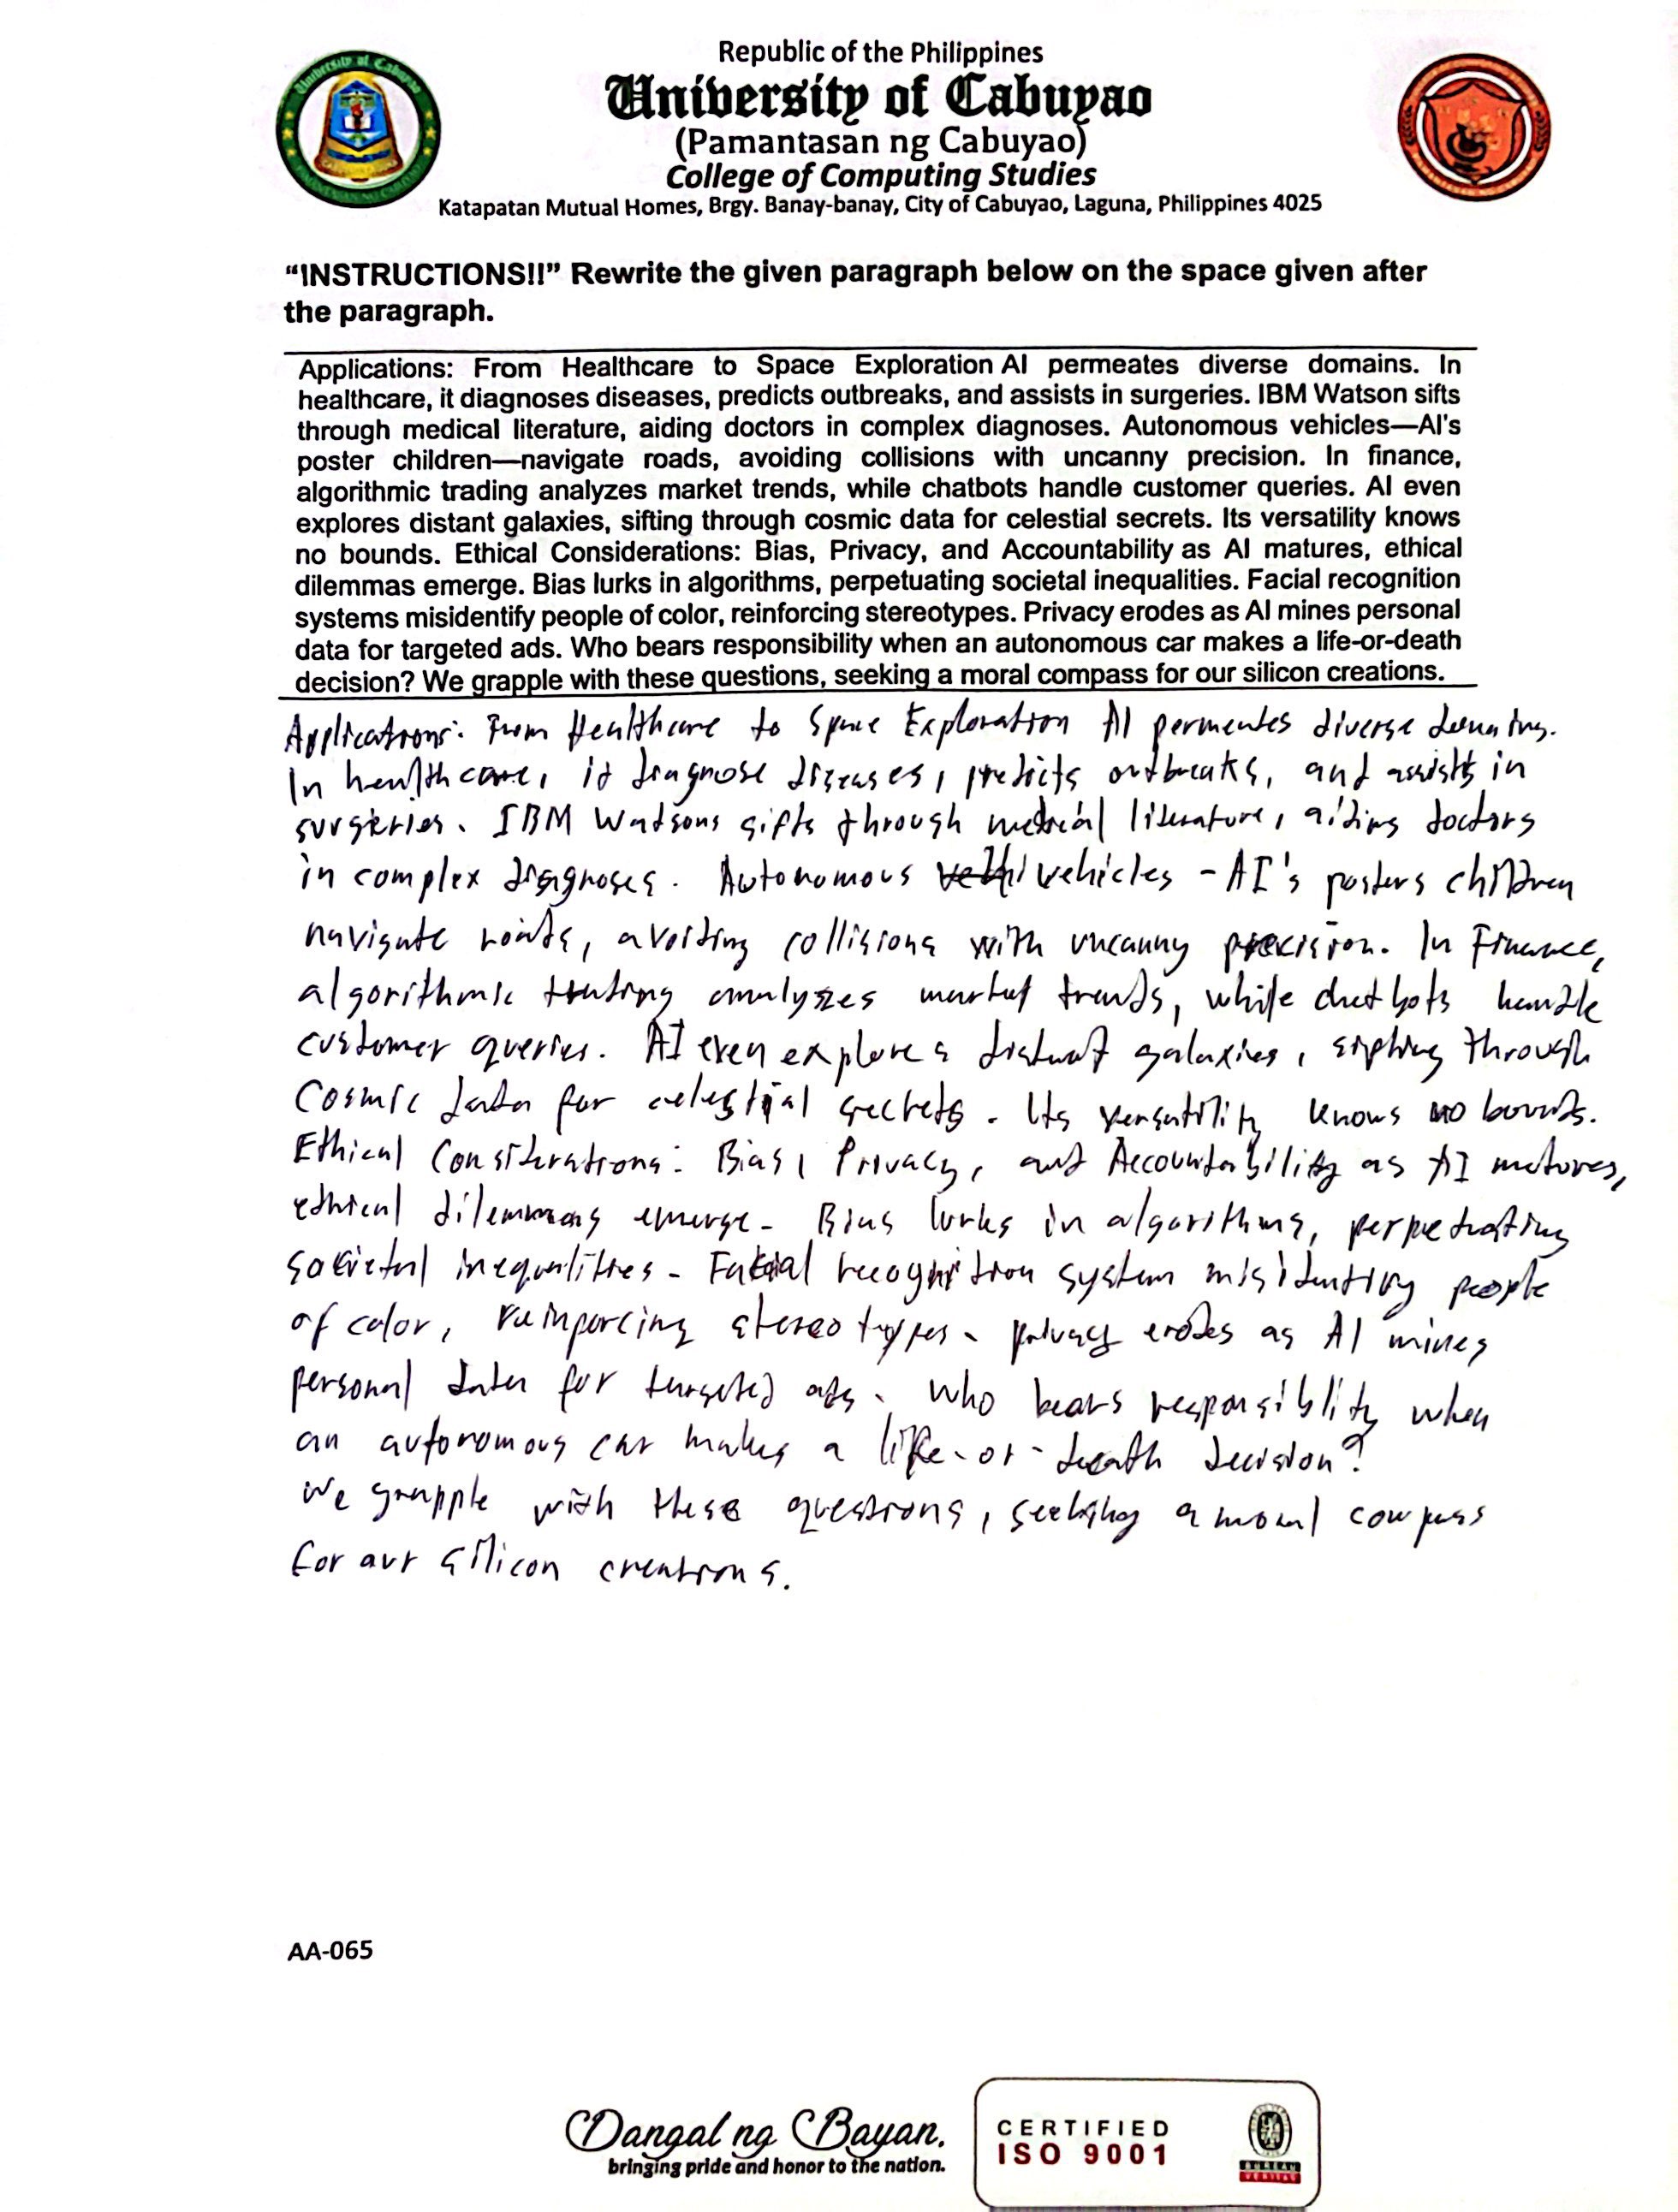 Republic of the Philippines
University of Cabuyao
(Pamantasan ng Cabuyao)
College of Computing Studies
Katapatan Mutual Homes, Brgy. Banay-banay, City of Cabuyao, Laguna, Philippines 4025
“INSTRUCTIONS!!” Rewrite the given paragraph below on the space given after
the paragraph.
Applications: From Healthcare to Space Exploration AI permeates diverse domains. In
healthcare, it diagnoses diseases, predicts outbreaks, and assists in surgeries. IBM Watson sifts
through medical literature, aiding doctors in complex diagnoses. Autonomous vehicles—AI's
poster children—navigate roads, avoiding collisions with uncanny precision. In finance,
algorithmic trading analyzes market trends, while chatbots handle customer queries. AI even
explores distant galaxies, sifting through cosmic data for celestial secrets. Its versatility knows
no bounds. Ethical Considerations: Bias, Privacy, and Accountability as AI matures, ethical
dilemmas emerge. Bias lurks in algorithms, perpetuating societal inequalities. Facial recognition
systems misidentify people of color, reinforcing stereotypes. Privacy erodes as AI mines personal
data for targeted ads. Who bears responsibility when an autonomous car makes a life-or-death
decision? We grapple with these questions, seeking a moral compass for our silicon creations.
Applications: From Healthcare to Space Exploration AI permeates diverse domains.
In healthcare, it diagnose diseases, predicts outbreaks, and assists in
surgeries. IBM Watsons sifts through medical literature, aiding doctors
in complex diagnoses. Autonomous vehicles - AI's posters children
navigate roads, avoiding collisions with uncanny precision. In Finance,
algorithmic trading analyzes market trends, while chatbots handle
customer queries. AI even explores distant galaxies, sipting through
Cosmic data for celestial secrets. Its versatility knows no bounds.
Ethical Considerations: Bias, Privacy, and Accountability as AI matures,
ethical dilemmas emerge. Bias lurks in algorithms, perpetuating
societal inequalities. Facial recognition system misidentify people
of color, reinporcing stereotypes. privacy erodes as AI mines
personal data for targeted ads. Who bears responsiblity when
an autonomous car makes a life-or-death decision?
We grapple with these questions, seeking a moral compass
for our silicon creations.
AA-065
Dangal ng Bayan.
bringing pride and honor to the nation.
CERTIFIED
ISO 9001
BUREAU
VERITAS